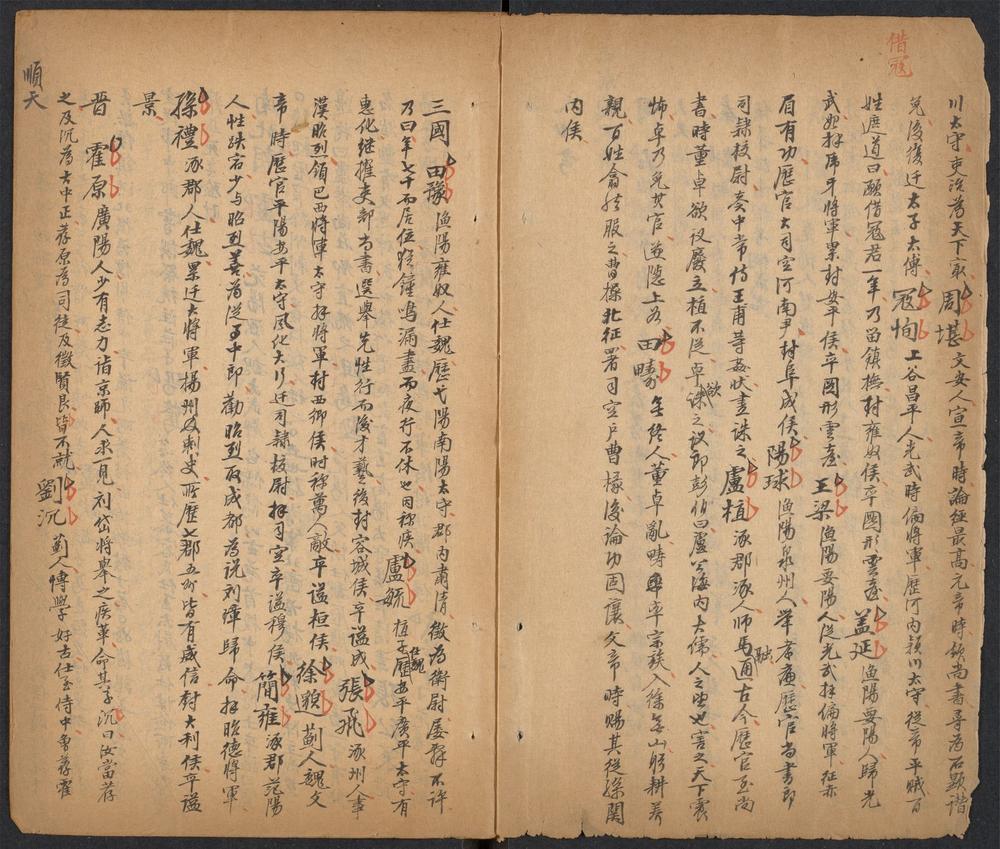 借寇
川太守吏治為天下最周堪文安人宣帝時論經最高元帝時領尚書事為石顯譖
免後復迁太子太傅寇恂上谷昌平人光武時偏將軍歷河内潁川太守從帝平賊百
姓遮道曰願借寇君一年乃留鎮撫封雍奴侯卒圖形雲臺盖延漁陽要陽人歸光
武妲拜虎牙將軍累封安平侯卒圖形雲臺王梁漁陽要陽人從光武拜偏將軍征赤
眉有功歷官大司空河南尹封阜成侯陽球漁陽泉州人舉孝廉歷官尚書即
司隸校尉奏中常侍王甫等姦狀盡誅之盧植涿郡涿人師馬融通古今歷官至尚
書時董卓欲議廢立植不從卓欲誅之议郎彭伯曰盧公海内大儒人之望也害之天下震
怖卓乃免其官遂隱上谷田疇無終人董卓亂時率宗族入徐無山躬耕養
親百姓翕然服之曹操北征署司空户曹掾後論功固讓文帝時賜其從孫関
内侯
三國田豫漁陽雍奴人仕魏歷弋陽南陽太守郡内肅清徵為衛尉屡辭不许
乃曰年七十而居位猶鐘鳴漏盡而夜行不休也因称疾盧毓植子仕魏歷安平廣平太守有
惠化继擢吏部尚書選舉先性行而後才藝後封容城侯卒謚成張飛涿州人事
漢昭烈領巴西將軍太守拜將軍封西鄉侯时称萬人敵卒謚桓侯徐邈蓟人魏文
帝時歷官平陽安平太守風化大行迁司隸校尉拜司空卒謚穆侯簡雍涿郡范陽
人性跌宕少与昭烈善为從事中郎勸昭烈取成都為说刘璋歸命拜昭德將軍
孫禮涿郡人仕魏累迁大將軍揚州刺史所歷七郡五州皆有威信封大利侯卒謚
景
晋霍原廣陽人少有志力詣京師人求一見刘岱将舉之疾革命其子沉曰汝當荐
之及沉為大中正荐原為司徒及徵賢良皆不就劉沉蓟人博學好古仕至侍中曾荐霍
順天